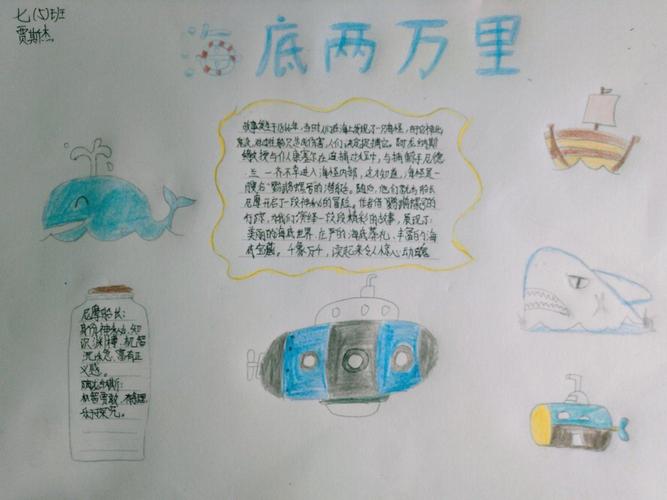 七(5)班
贾斯杰
海底两万里
故事发生于1866年,当时人们在海上发现了一只海怪
人们决定捕捉它。阿龙纳斯
教授与仆人康塞尔在追捕过程中,与捕鲸手尼德
兰一齐不幸进入海怪内部,这才知道,海怪是一
艘名"鹦鹉螺号的潜艇。随后,他们就与船长
尼摩开启了一段神秘的冒险。作者借"鹦鹉螺号的
行踪,为我们演绎一段段精彩的故事,展现了
美丽的海底世界、庄严的海底葬礼、丰富的海
底宝藏。千象万千,读起来令人惊心动魄
尼摩船长:
身份神秘、知
识渊博、机智
沉着、富有正
义感。
阿龙纳斯:
机智勇敢、
乐于探究。